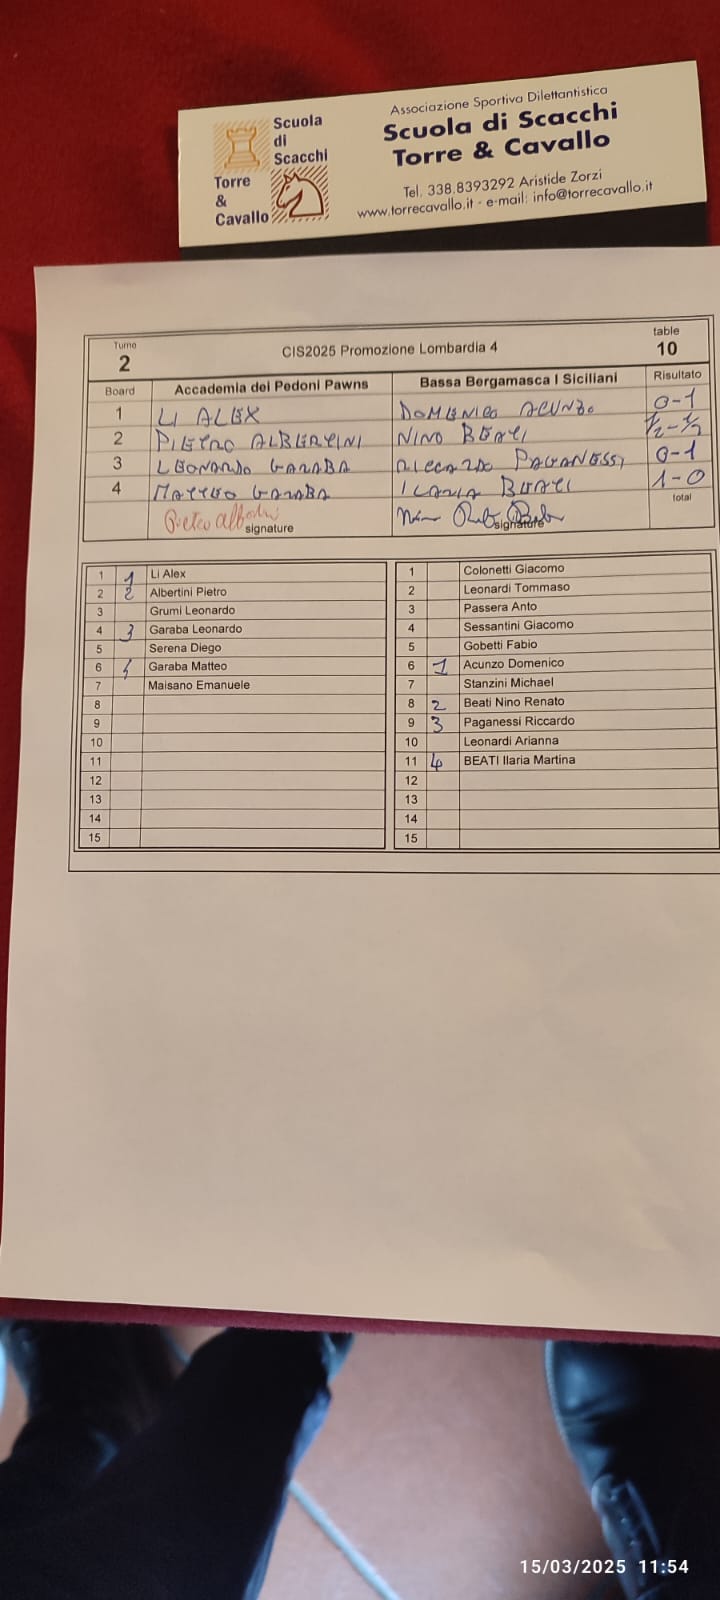 Scuola
di
Scacchi
Torre
&
Cavallo
Associazione Sportiva Dilettantistica
Scuola di Scacchi
Torre & Cavallo
Tel. 338.8393292 Aristide Zorzi
www.torrecavallo.it - e-mail: info@torrecavallo.it
Turno 2 CIS2025 Promozione Lombardia 4 table 10
Board Accademia dei Pedoni Pawns Bassa Bergamasca I Siciliani Risultato
1 LI ALEX DOMENICO ACUNZO 0-1
2 PIETRO ALBERTINI NINO BEATI 1/2-1/2
3 LEONARDO GARABA RICCARDO PAGANESSI 0-1
4 MATTEO GARABA ILARIA BEATI 1-0
total
signature signature
1 1 Li Alex 1 Colonetti Giacomo
2 2 Albertini Pietro 2 Leonardi Tommaso
3 Grumi Leonardo 3 Passera Anto
4 3 Garaba Leonardo 4 Sessantini Giacomo
5 Serena Diego 5 Gobetti Fabio
6 4 Garaba Matteo 6 1 Acunzo Domenico
7 Maisano Emanuele 7 Stanzini Michael
8 8 2 Beati Nino Renato
9 9 3 Paganessi Riccardo
10 10 Leonardi Arianna
11 11 4 BEATI Ilaria Martina
12 12
13 13
14 14
15 15
15/03/2025 11:54